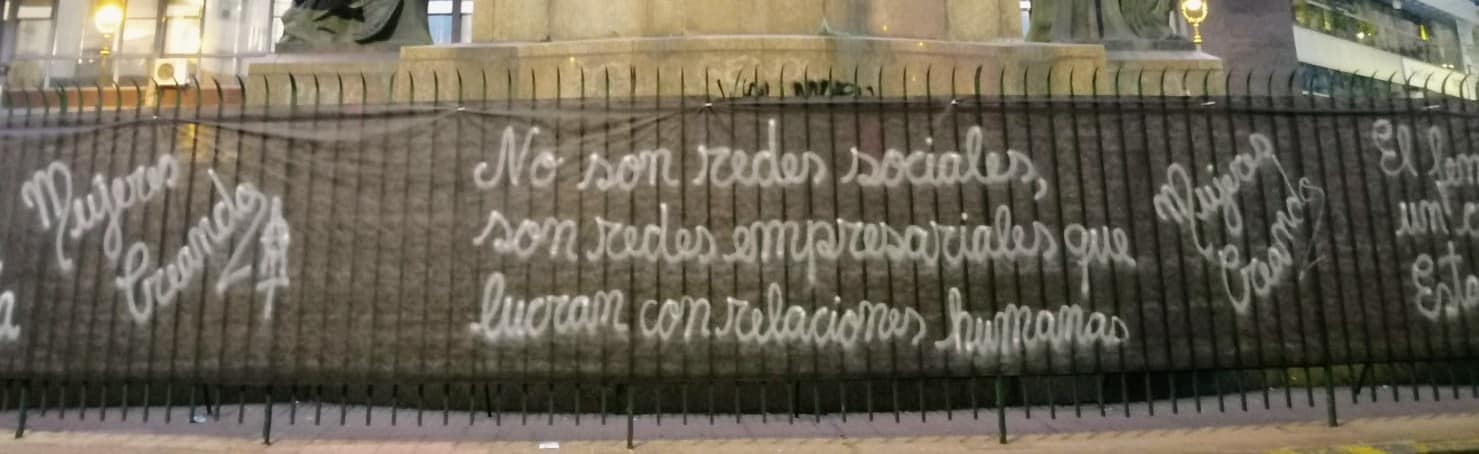 Mujeres
Creando
No son redes sociales,
son redes empresariales que
lucran con relaciones humanas
Mujeres
Creando
El
un